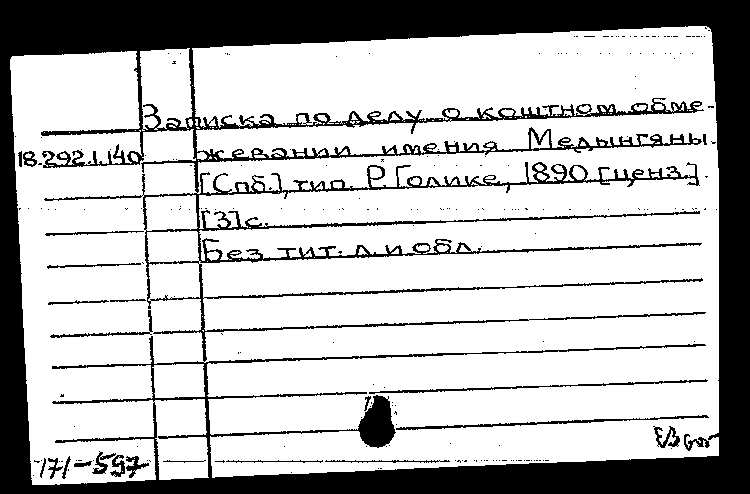 Записка по делу о коштном обме-
18.292.1.140 жевании имения Медынгяны.
[Спб.], тип. Р. Голике, 1890 [ценз.].
[3] с.
Без тит. л. и обл.
171-597